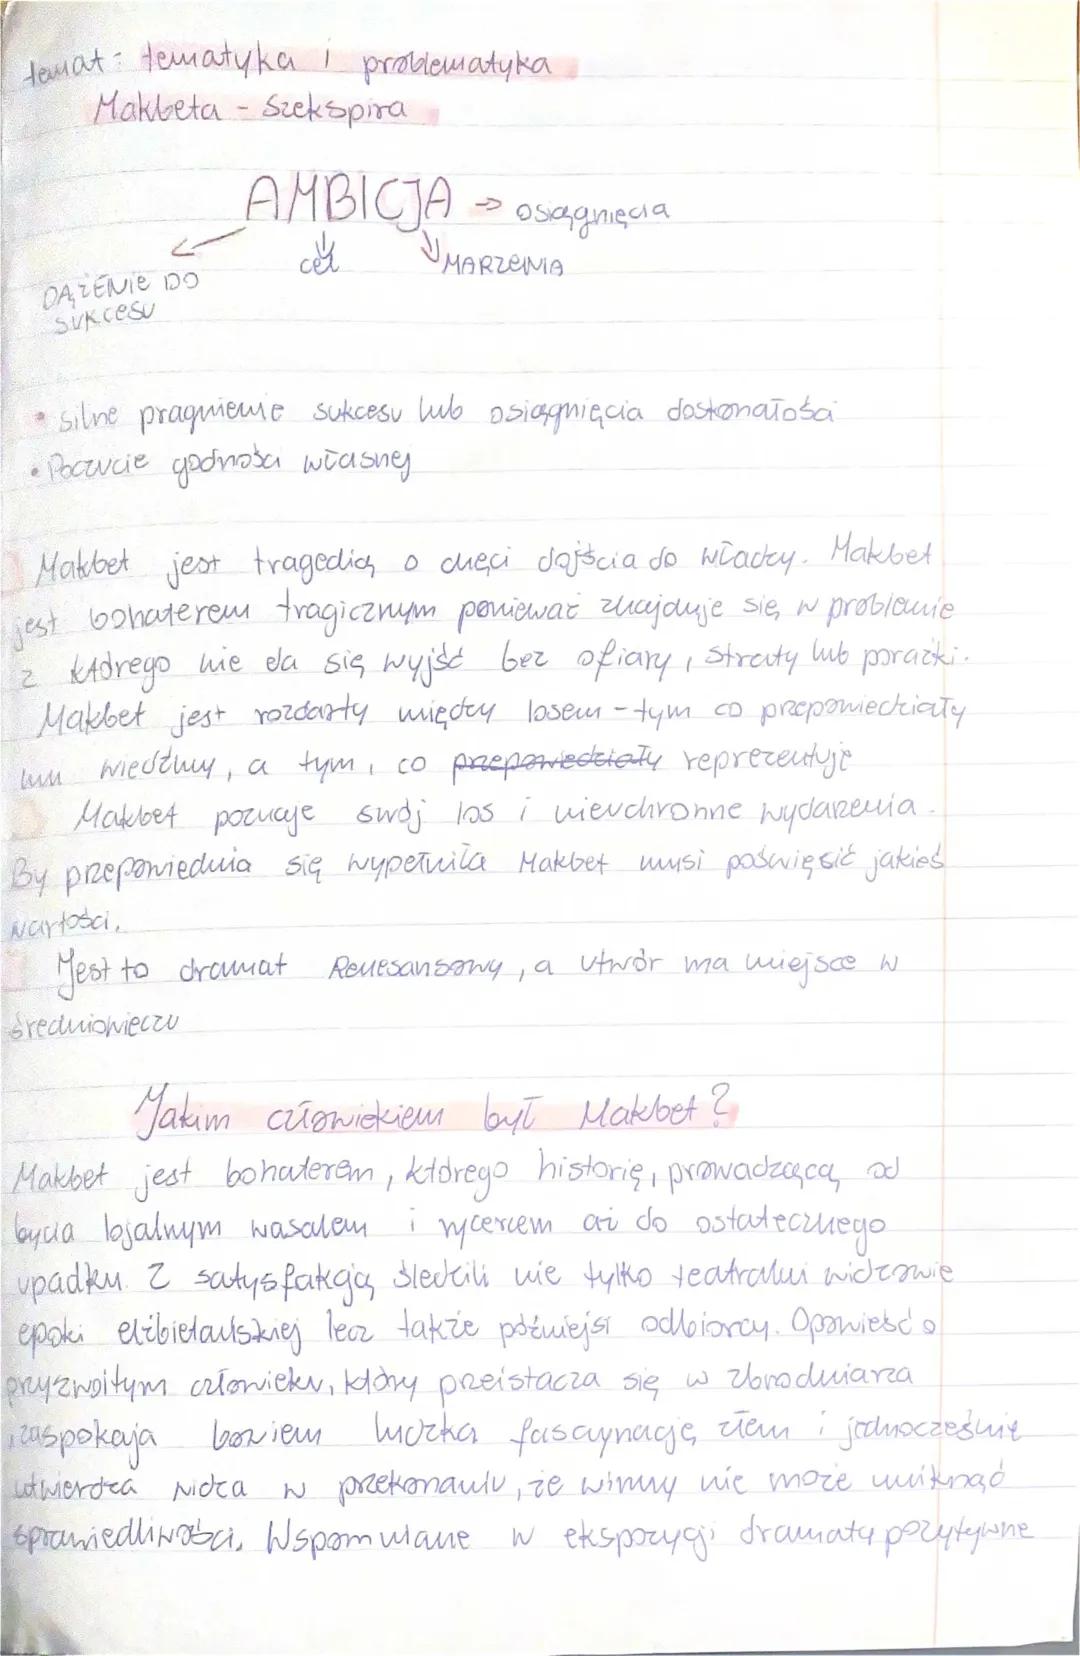 temat: tematyka i problematyka
Makbeta - Szekspira
AMBICJA → osiągnięcia
cel
MARZENIA
DĄŻENIE DO
SUKCESU
• silne pragnienie sukcesu lub osiągnięcia doskonałości
• Poczucie godności własnej
Makbet jest tragedią o chęci dojścia do władzy. Makbet
jest bohaterem tragicznym ponieważ znajduje się w problemie
z którego nie da się wyjść bez ofiary, straty lub porażki.
Makbet jest rozdarty między losem - tym co przepowiedziały
mu wiedźmy, a tym, co przepowiedziały reprezentuje
Makbet poznaje swój los i nieuchronne wydarzenia.
By przepowiednia się wypełniła Makbet musi poświęsić jakieś
wartości.
Jest to dramat Renesansowy, a utwór ma miejsce w
średniowieczu
Jakim człowiekiem był Makbet?
Makbet jest bohaterem, którego historię, prowadzącą od
bycia lojalnym wasalem i rycerzem aż do ostatecznego
upadku. Z satysfakcją śledzili nie tylko teatralni widzowie
epoki elżbietańskiej lecz także późniejsi odbiorcy. Opowieść o
przyzwoitym człowieku, który przeistacza się w zbrodniarza
, zaspokaja bowiem ludzką fascynację złem i jednocześnie
utwierdza widza w przekonaniu, że winny nie może uniknąć
sprawiedliwości. Wspomniane w ekspozycji dramatu pozytywne